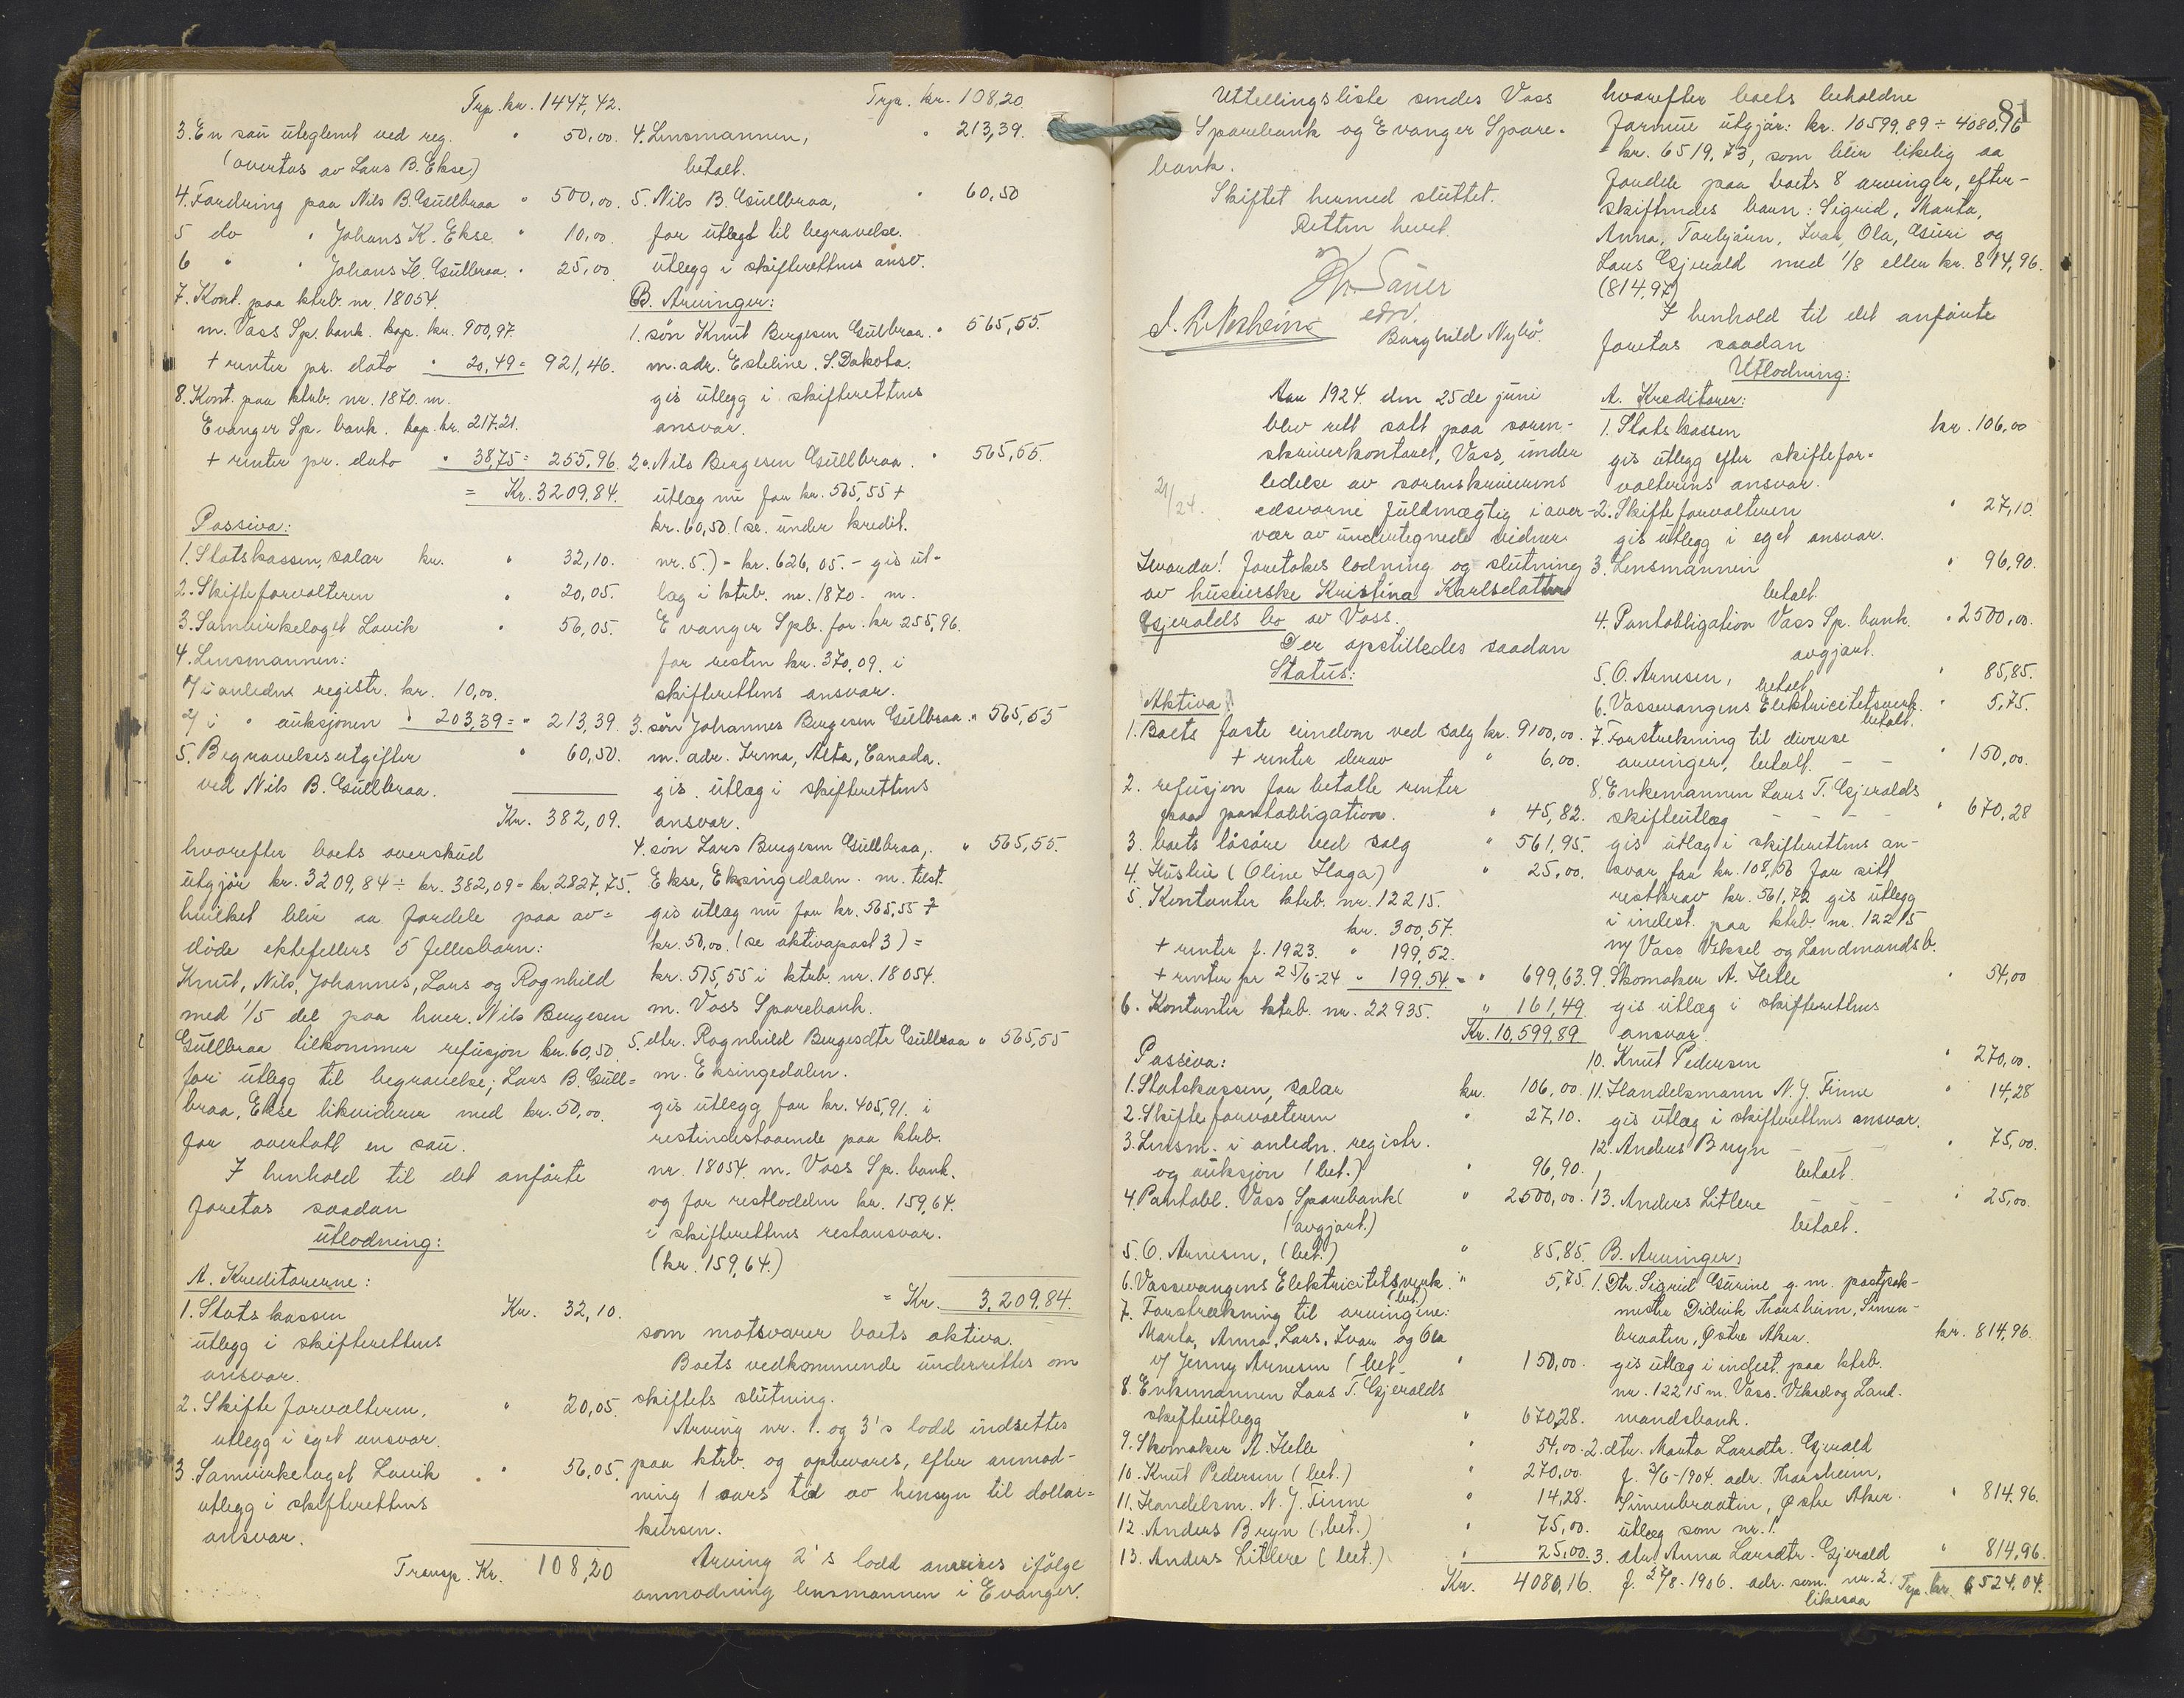 Trp. kr. 1447,42.
3. En sau uteglemt ved reg. " 50,00.
(overtas av Lars B. Ekse)
4. Fordring paa Nils B. Gullbraa " 500,00.
5 do " Johans K. Ekse. " 10,00.
6 " " Johans H. Gullbraa. " 25,00
7. Kont. paa ktrb. nr. 18054.
m. Voss Sp. bank. kap. kr. 900,97.
+ renter pr. dato " 20,49 = 921,46.
8. Kont. paa ktrb. nr. 1870. m.
Evanger Sp. bank. kap. kr. 217.21.
+ renter pr. dato " 38,75 = 255,96.
= Kr. 3209,84.
Passiva:
1. Statskassen, salær kr. " 32,10.
2. Skifteforvalteren " 20,05.
3. Samvirkelaget Lavik " 56,05.
4. Lensmannen:
1/ i anledn. registr. kr. 10,00.
2/ i " auksjonen " 203,39 = " 213,39.
5. Begravelsesutgifter " 60,50.
ved Nils B. Gullbraa.
Kr. 382,09.
hvorefter boets overskud
utgjør kr. 3209,84 ÷ kr. 382,09 = kr. 2827,75.
hvilket blir aa fordele paa av=
døde ektefellers 5 fellesbarn:
Knut, Nils, Johannes, Lars og Ragnhild
med 1/5 del paa hver. Nils Bergesen
Gullbraa tilkommer refusjon kr. 60,50
for utlegg til begravelse; Lars B. Gull=
braa, Ekse likviderer med kr. 50,00.
for overtatt en sau.
I henhold til det anførte
foretas saadan
utlodning:
A. Kreditorerne:
1. Statskassen Kr. 32,10.
utlegg i skifterettens
ansvar.
2. Skifteforvalteren, " 20,05.
utlegg i eget ansvar.
3. Samvirkelaget Lavik " 56,05.
utlegg i skifterettens
ansvar.
Transp. Kr. 108,20
Trp. kr. 108,20
4. Lensmannen, " 213,39.
betalt.
5. Nils B. Gullbraa, " 60,50
for utlegt til begravelse.
utlegg i skifterettens ansv.
B. Arvinger:
1. søn Knut Bergesen Gullbraa. " 565,55.
m. adr. Esteline. S. Dakota.
gis utlegg i skifterettens
ansvar.
2. Nils Bergesen Gullbraa. " 565,55.
utlæg nu for kr. 565,55 +
kr. 60,50. (se under kredit.
nr. 5.) = kr. 626,05. - gis ut=
læg i ktrb. nr. 1870. m.
Evanger Spb. for kr 255,96.
for resten kr. 370,09. i
skifterettens ansvar.
3. søn Johannes Bergesen Gullbraa " 565,55
m. adr. Irma, Alta, Canada.
gis utlæg i skifterettens
ansvar.
4. søn Lars Bergesen Gullbraa, " 565,55.
Ekse, Eksingedalen. m. tilst.
gis utlæg nu for kr. 565,55 ÷
kr. 50,00. (se aktivapost 3) =
kr. 515,55 i ktrb. nr. 18054.
m. Voss Sparebank.
5. dtr. Ragnhild Bergesdtr Gullbraa " 565,55
m. Eksingedalen.
gis utlegg for kr. 405,91. i
restindestaaende paa ktrb.
nr. 18054. m. Voss Sp. bank.
og for restlodden kr. 159,64.
i skifterettens restansvar.
(kr. 159,64.)
= Kr. 3.209.84.
som motsvarer boets aktiva.
Boets vedkommende underrettes om
skiftets slutning.
Arving nr. 1. og 3's lodd indsettes
paa ktrb. og opbevares, efter anmod-
ning 1 aars tid av hensyn til dollar=
kursen.
Arving 2's lodd anvises ifølge
anmodning lensmannen i Evanger.
81
Uttellingsliste sendes Voss
Sparebank og Evanger Spare-
bank.
Skiftet hermed sluttet.
Retten hevet.
edsv.
Borghild Nybø.
Aar 1924. den 25de juni
blev rett satt paa soren-
skriverkontoret, Voss, under
21/24.
ledelse av sorenskriverens
edsvorne fuldmægtig i over-
vær av undertegnede vidner.
Hvorda! foretokes lodning og slutning
av husierske Kristina Karlsdatter
Gjeralds bo av Voss.
Der opstilledes saadan
Status:
Aktiva
1. Boets faste eiendom ved salg kr. 9100,00.
+ renter derav " 6,00.
2. refusjon for betalte renter
paa pantobligation. " 45,82.
3. boets løsøre ved salg " 561,95.
4. Husleie (Oline Haga) " 25,00.
5. Kontanter ktrb. nr. 12215.
kr. 300,57.
+ renter f. 1923. " 199,52.
+ renter pr 25/6-24 " 199,54. = " 699,63
6. Kontanter ktrb. nr. 22935. " 161,49
Kr. 10,599,89
Passiva:
1. Statskassen, salær kr. 106,00
2. Skifteforvalteren " 27,10.
3. Lensm. i anledn. registr.
og auksjon (bet.) " 96,90.
4. Pantobl. Voss Sparebank " 2500,00.
(avgjort.)
5. O. Arnesen, (bet.) " 85,85.
6. Vossevangens Elektricitetsverk " 5,75
(bet.)
7. Forstrækning til arvingene:
Marta, Anna, Lars, Ivar og Ola
v/ Jenny Arnesen (bet. " 150,00.
8. Enkemannen Lars T. Gjeralds
skifteutlegg " 670,28.
9. Skomaker A. Helle " 54,00.
10. Knut Pedersen (bet.) " 270,00.
11. Handelsm. N. J. Finne " 14,28.
12. Anders Bryn (bet.) " 75,00.
13. Anders Litlere (bet.) " 25,00.
Kr. 4080,16.
hvorefter boets beholdne
formue utgjør: kr. 10599,89 ÷ 4080,16
= kr. 6519,73, som blir likelig aa
fordele paa boets 8 arvinger, efter-
skiftendes barn: Sigrid, Marta,
Anna, Torbjørn, Ivar, Ola, Guri og
Lars Gjerald med 1/8 eller kr. 814,96.
(814,97)
I henhold til det anførte
foretas saadan
Utlodning:
A. Kreditorer:
1. Statskassen kr. 106,00
gis utlegg efter skiftefor-
valterens ansvar.
2. Skifteforvalteren " 27,10
gis utlegg i eget ansvar.
3. Lensmannen " 96,90.
betalt
4. Pantobligation Voss Sp. bank. " 2500,00.
avgjort.
5. O. Arnesen, betalt " 85,85.
6. Vossevangens Elektricitetsverk. " 5,75.
betalt.
7. Forstrekning til diverse
arvinger, betalt. " 150,00.
8. Enkemannen Lars T. Gjeralds
skifteutlæg " 670,28
gis utlæg i skifterettens an-
svar for kr. 108,56 for sitt
restkrav kr. 561,72 gis utlegg
i indest. paa ktrb. nr. 12215
m/ Voss Veksel og Landmandsb.
9. Skomaker A. Helle " 54,00
gis utlæg i skifterettens
ansvar.
10. Knut Pedersen " 270,00.
11. Handelsmann N. J. Finne " 14,28
gis utlæg i skifterettens ansvar.
12. Anders Bryn " 75,00.
betalt.
13. Anders Litlere " 25,00.
betalt.
B. Arvinger,
1. Dtr. Sigrid Gurine, g. m. postpak-
mester Didrik Thorsheim, Simen-
braaten, Østre Aker. kr. 814,96.
gis utlæg i indest. paa ktrb.
nr. 12215 m. Voss. Veksel og Land-
mandsbank.
2. dtr. Marta Larsdtr. Gjerald
f. 3/6-1904. adr. Thorsheim,
Simenbraaten, Østre Aker. " 814,96.
utlæg som nr. 1.
3. dtr. Anna Larsdtr. Gjerald " 814,96.
f. 27/8-1906. adr. som nr. 2. Trp. kr. 6524,04.
likesaa